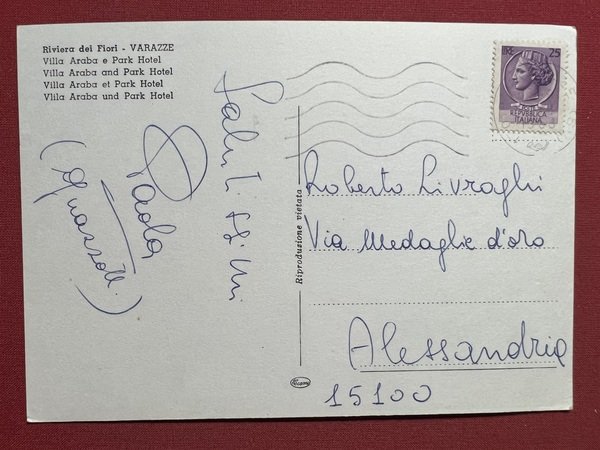 Riviera dei Fiori - VARAZZE
Villa Araba e Park Hotel
Villa Araba and Park Hotel
Villa Araba et Park Hotel
Villa Araba und Park Hotel
Saluti
Paola
Riproduzione vietata
LIRE 25
POSTE
REPVBBLICA
ITALIANA
Roberto Livraghi
Via Medaglie d'oro
Alessandria
15100